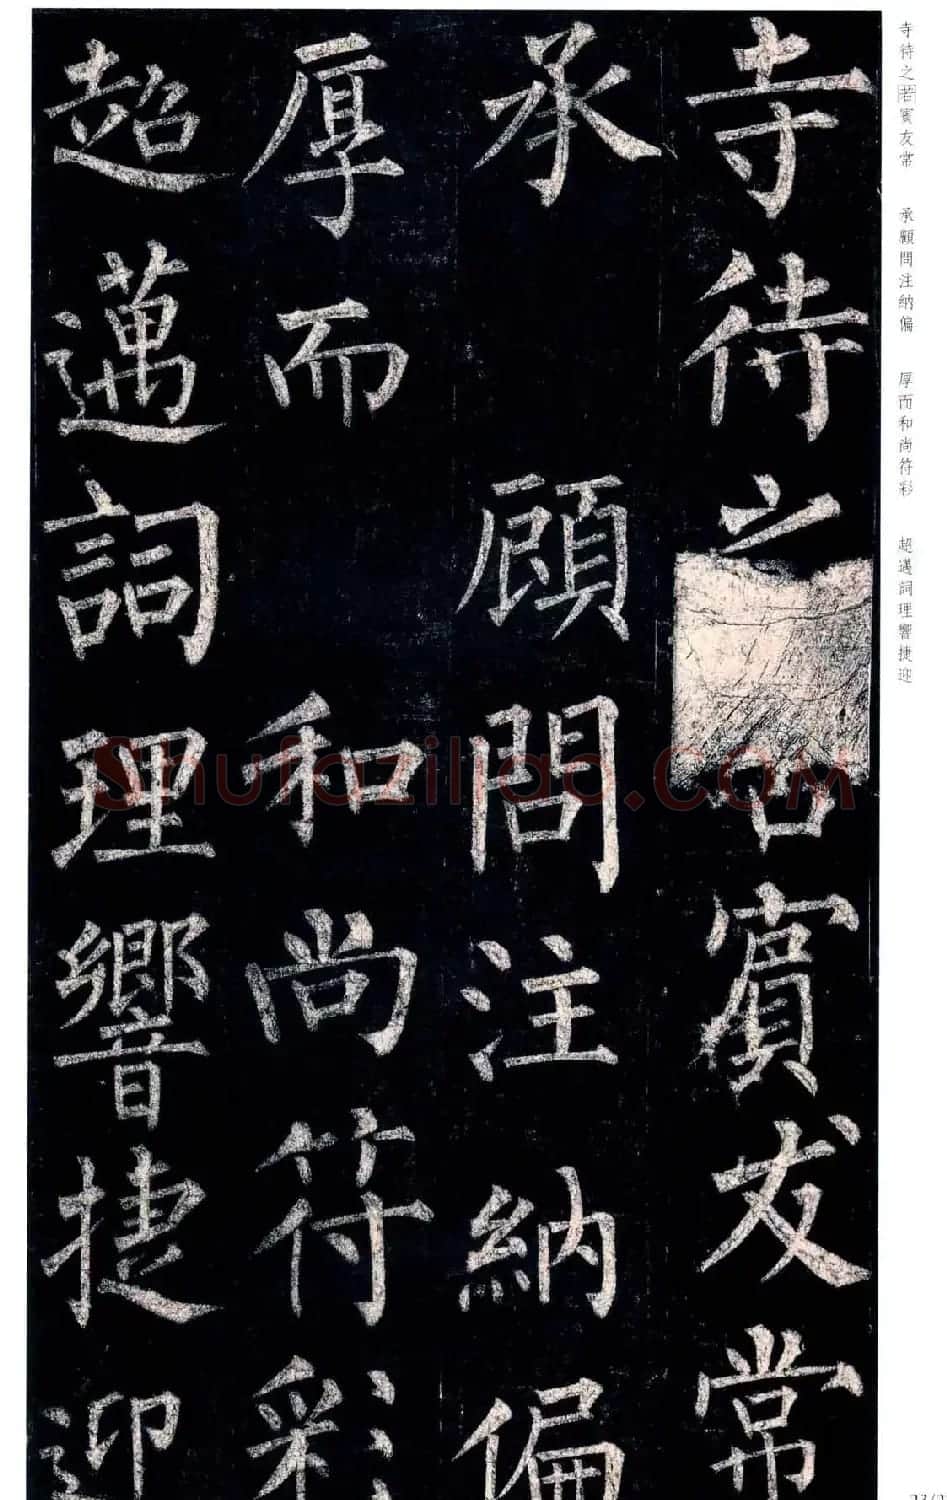 寺待之若賓友常
承顧問注納偏
厚而和尚符彩
超邁詞理響捷迎
寺待之若賓友常 承顧問注納偏 厚而和尚符彩 超邁詞理響捷迎
Shufaziliao.com